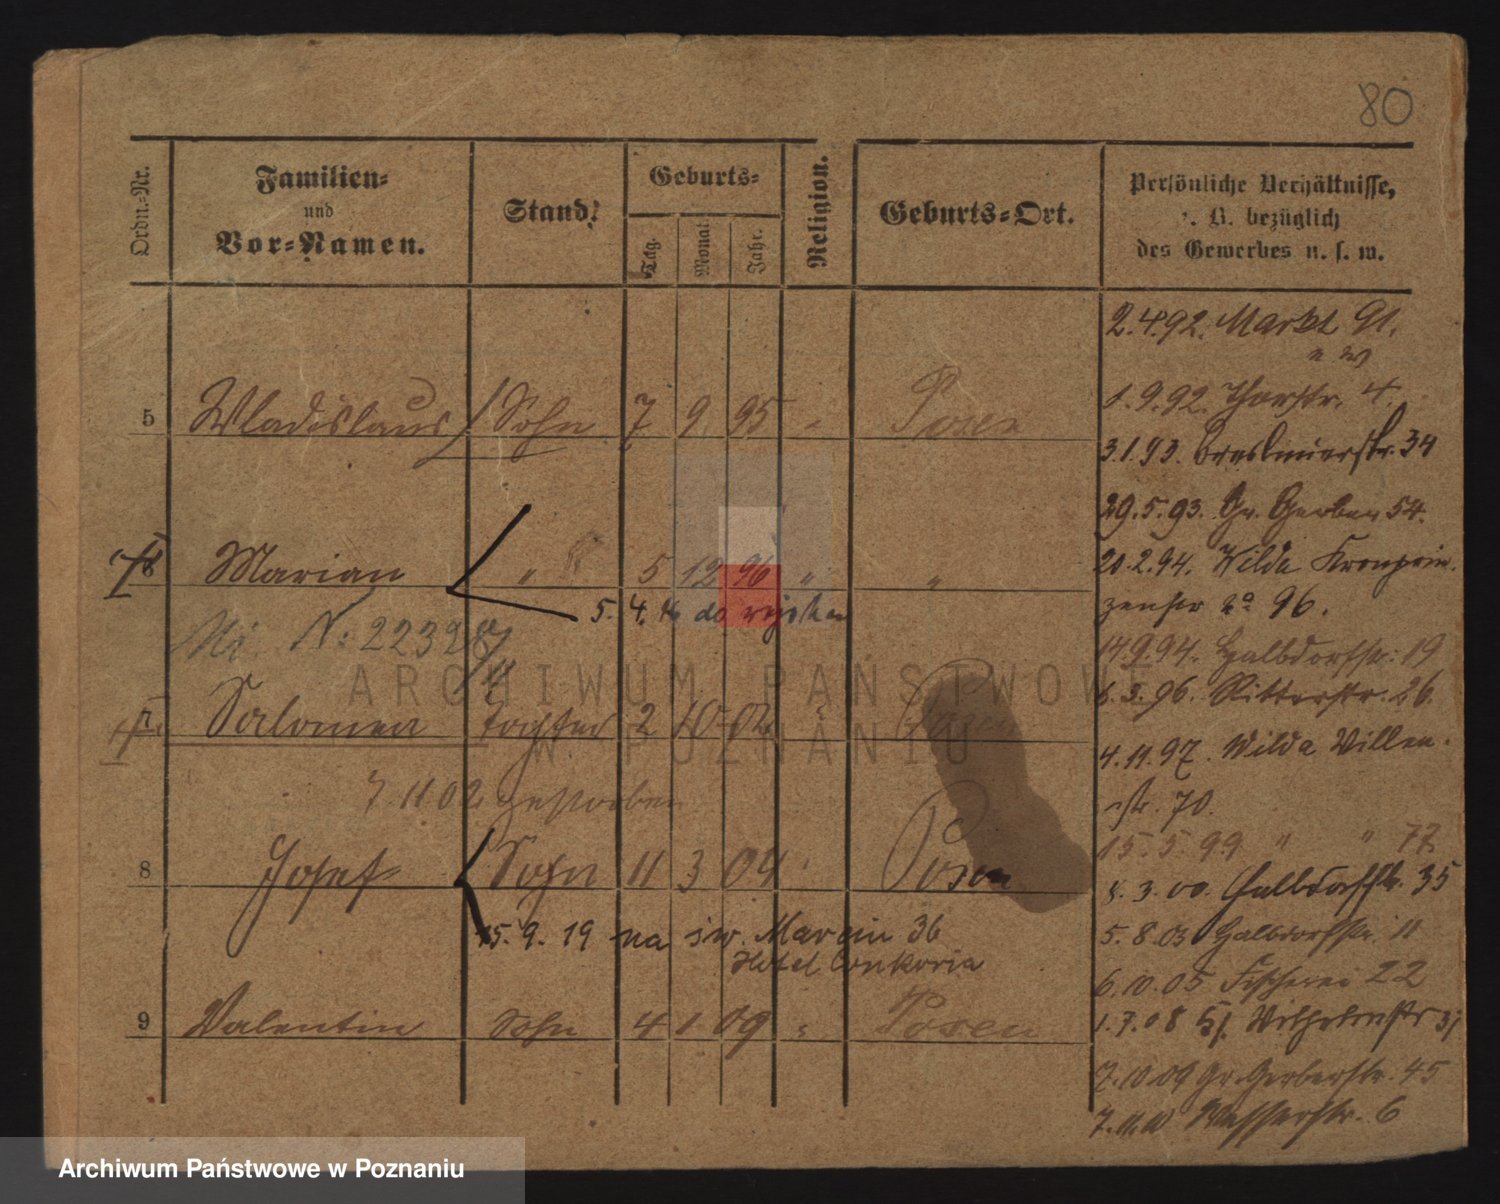 80
Ordn.-Nr.
Familien-
und
Vor-Namen.
Stand.
Geburts-
Tag.
Monat
Jahr.
Religion.
Geburts-Ort.
Persönliche Verhältnisse,
z. B. bezüglich
des Gewerbes u. s. w.
5 Wladislaus Sohn 7 9 95 " Posen
6 Marian " 5 12 96 " "
5. 4. 16 do wojska
N: 22328
7 Salomea Tochter 2 10 02 " Posen
7. 11 02 gestorben
8 Josef Sohn 11 3 04 " Posen
15. 9. 19 na św. Marcin 36
Hotel Conkoria
9 Valentin Sohn 4 1 09 " Posen
2.4.92. Markt 91.
1.9.92. Thorstr. 4.
3.1.93. Breslauerstr. 34
29.5.93. Gr. Gerber 54.
20.2.94. Wilda Kronprin-
zenstr 96.
14.9.94. Halbdorfstr. 19
3.96. Ritterstr. 26.
4.11.97. Wilda Villen-
str. 70.
15.5.99 " " 77.
3.00. Halbdorfstr. 35
5.8.03 Halbdorfstr. 11
6.10.05 Fischerei 22
1.7.08 Wilhelmstr
7.10.09 Gr. Gerberstr. 45
7.11.10 Wasserstr. 6
ARCHIWUM PAŃSTWOWE
W POZNANIU
Archiwum Państwowe w Poznaniu